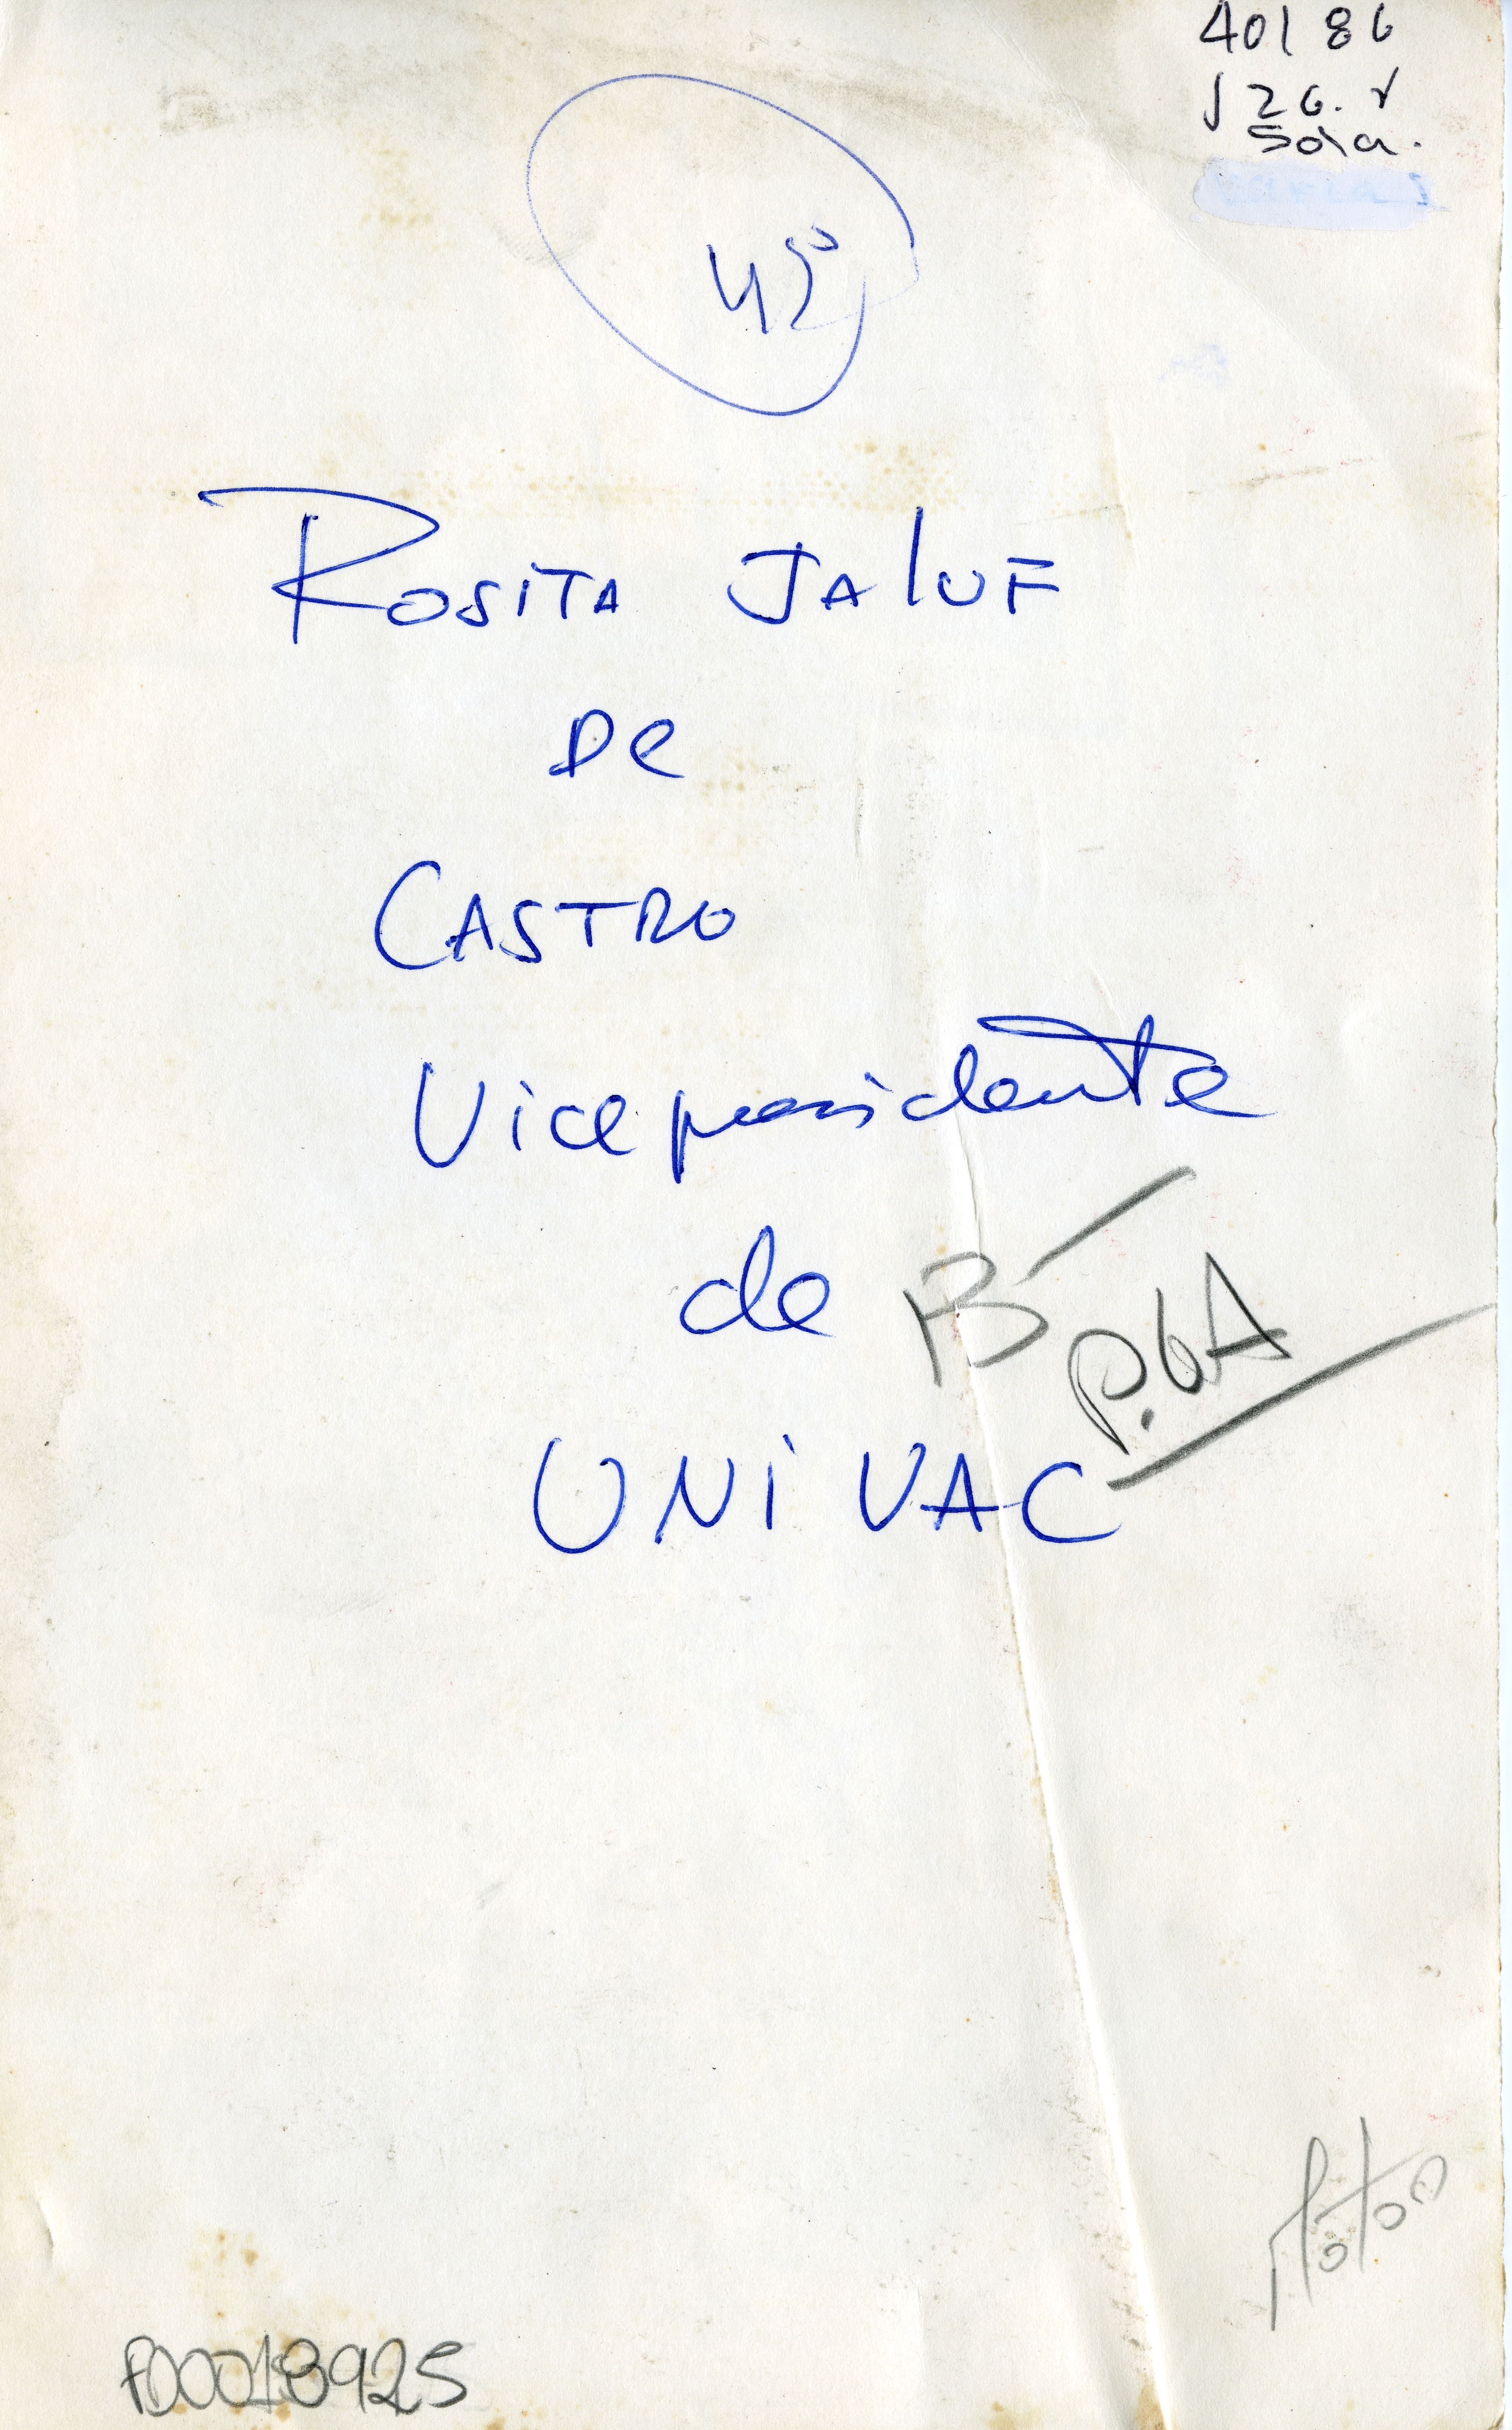 40186
J26.r
Soia.
45º
ROSITA JALUF
De
CASTRO
Vicepresidente
de
B
P.6A
UNIVAC
fotos
F00018925